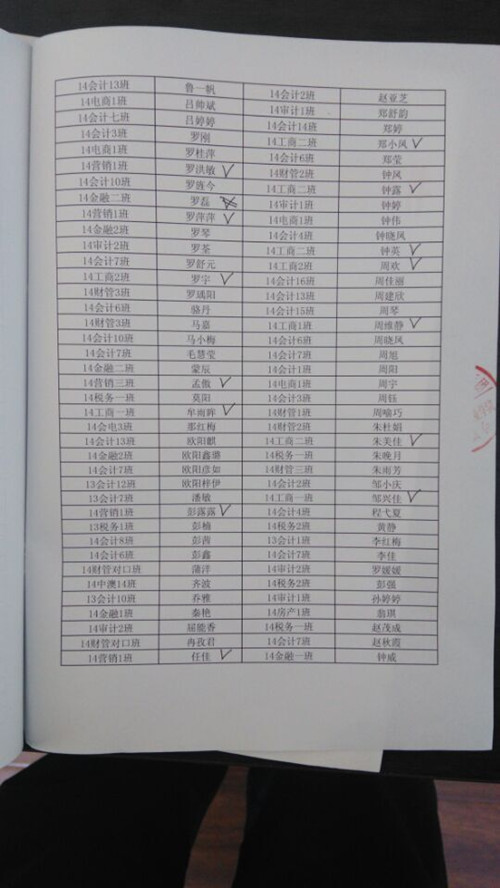 14会计13班 鲁一帆 14会计2班 赵亚芝
14电商1班 吕帅斌 14审计1班 郑舒韵
14会计七班 吕婷婷 14会计14班 郑婷
14会计3班 罗刚 14工商二班 郑小凤
14电商1班 罗桂萍 14会计6班 郑莹
14营销1班 罗洪敏 14财管2班 钟凤
14会计10班 罗旌今 14工商二班 钟露
14金融二班 罗磊 14审计1班 钟婷
14营销1班 罗萍萍 14电商1班 钟伟
14金融2班 罗琴 14会计4班 钟晓凤
14审计2班 罗荃 14工商二班 钟英
14会计7班 罗舒元 14工商2班 周欢
14工商2班 罗宇 14会计16班 周佳丽
14财管3班 罗瑀阳 14会计13班 周建欣
14会计6班 骆丹 14会计15班 周琴
14财管3班 马嘉 14工商1班 周维静
14会计10班 马小梅 14会计6班 周晓凤
14会计7班 毛慧莹 14会计7班 周旭
14金融二班 蒙辰 14会计1班 周阳
14营销三班 孟傲 14电商1班 周宇
14税务一班 莫阳 14会计3班 周钰
14工商一班 牟雨晖 14财管1班 周喻巧
14会电3班 那红梅 14财管2班 朱杜娟
14会计13班 欧阳麒 14工商二班 朱美佳
14金融2班 欧阳鑫璐 14税务一班 朱晚月
14会计7班 欧阳彦如 14财管三班 朱雨芳
13会计12班 欧阳梓伊 14会计2班 邹小庆
13会计7班 潘敏 14工商一班 邹兴佳
14营销1班 彭露露 14会计4班 程弋夏
13税务1班 彭楠 14税务2班 黄静
14会计8班 彭茜 13会计1班 李红梅
14会计6班 彭鑫 14会计7班 李佳
14财管对口班 蒲洋 14审计2班 罗媛媛
14中澳14班 齐波 14税务2班 彭强
13会计10班 乔雅 14审计1班 孙婷婷
14金融1班 秦艳 14房产1班 翁琪
14审计2班 屈能香 14税务一班 赵茂成
14财管对口班 冉孜君 14会计7班 赵秋霞
14营销1班 任佳 14金融一班 钟威